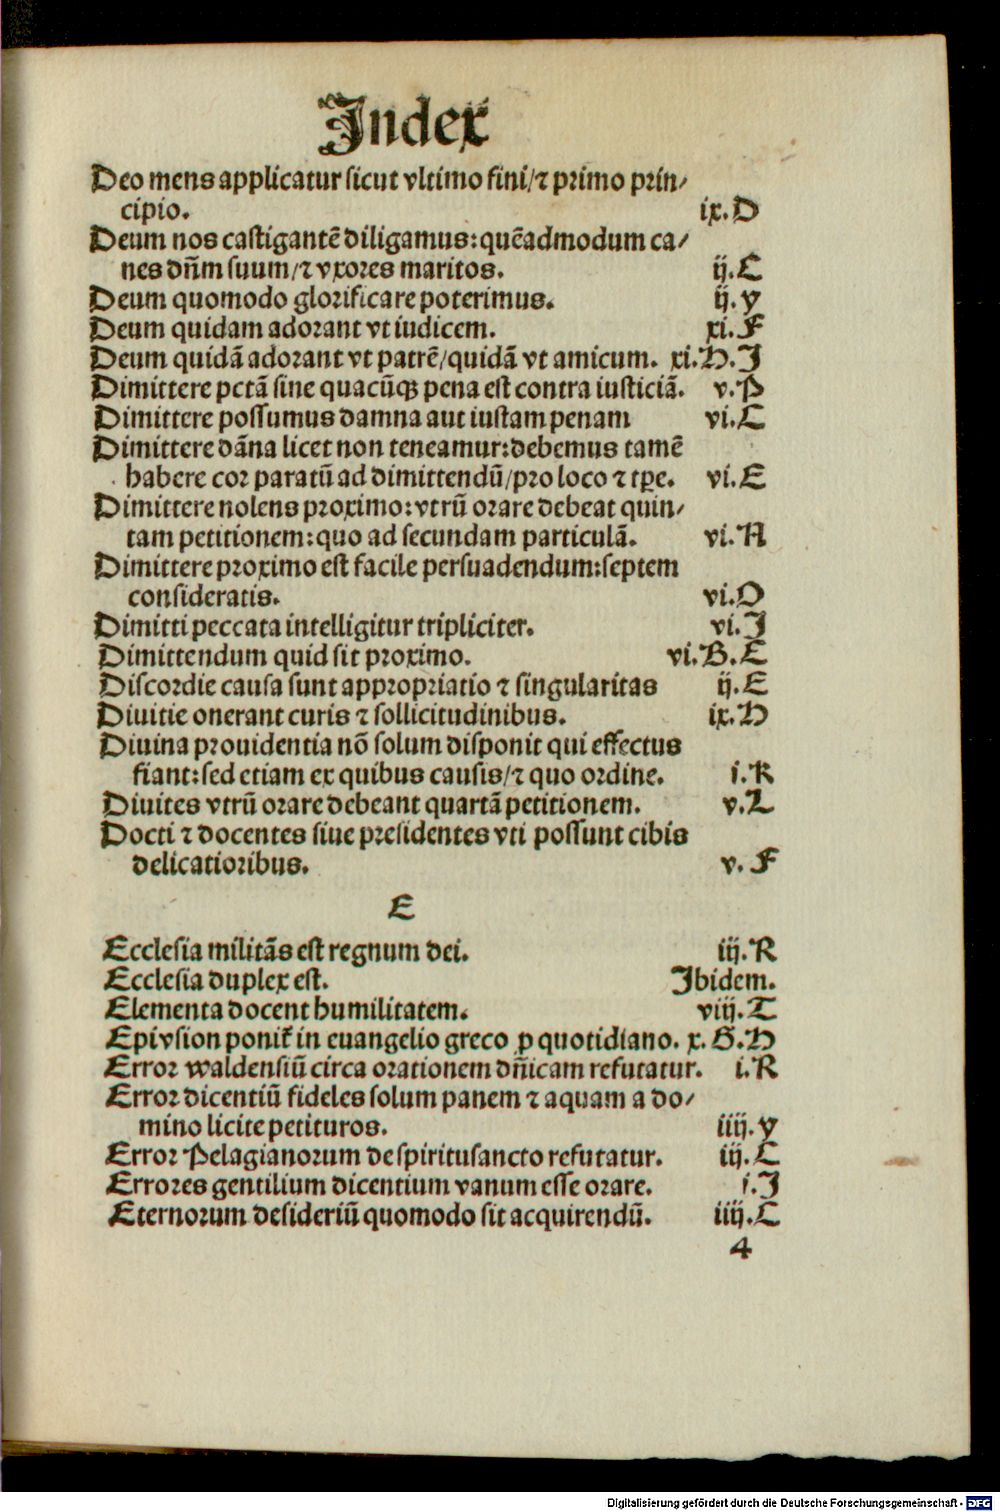 Index
Deo mens applicatur sicut vltimo fini/⁊ primo prin⸗
cipio. ix.D
Deum nos castigantē diligamus:quēadmodum ca⸗
nes dn̄m suum/⁊ vxores maritos. ij.C
Deum quomodo glorificare poterimus. ij.y
Deum quidam adorant vt iudicem. xi.F
Deum quidā adorant vt patrē/quidā vt amicum. xi.H.I
Dimittere pctā sine quacūqꝫ pena est contra iusticiā. v.P
Dimittere possumus damna aut iustam penam vi.C
Dimittere dāna licet non teneamur:debemus tamē
habere cor paratū ad dimittendū/pro loco ⁊ tꝑe. vi.E
Dimittere nolens proximo:vtrū orare debeat quin⸗
tam petitionem:quo ad secundam particulā. vi.N
Dimittere proximo est facile persuadendum:septem
consideratis. vi.O
Dimitti peccata intelligitur tripliciter. vi.I
Dimittendum quid sit proximo. vi.B.C
Discordie causa sunt appropriatio ⁊ singularitas ij.E
Diuitie onerant curis ⁊ sollicitudinibus. ix.H
Diuina prouidentia nō solum disponit qui effectus
fiant:sed etiam ex quibus causis/⁊ quo ordine. i.R
Diuites vtrū orare debeant quartā petitionem. v.L
Docti ⁊ docentes siue presidentes vti possunt cibis
delicatioribus. v.F
E
Ecclesia militās est regnum dei. iij.R
Ecclesia duplex est. Ibidem.
Elementa docent humilitatem. viij.T
Epivsion ponit᷑ in euangelio greco ꝓ quotidiano. x.G.H
Error waldensiū circa orationem dn̄icam refutatur. i.R
Error dicentiū fideles solum panem ⁊ aquam a do⸗
mino licite petituros. iiij.y
Error Pelagianorum de spiritusancto refutatur. iij.C
Errores gentilium dicentium vanum esse orare. i.I
Eternorum desideriū quomodo sit acquirendū. iiij.C
4
Digitalisierung gefördert durch die Deutsche Forschungsgemeinschaft - DFG